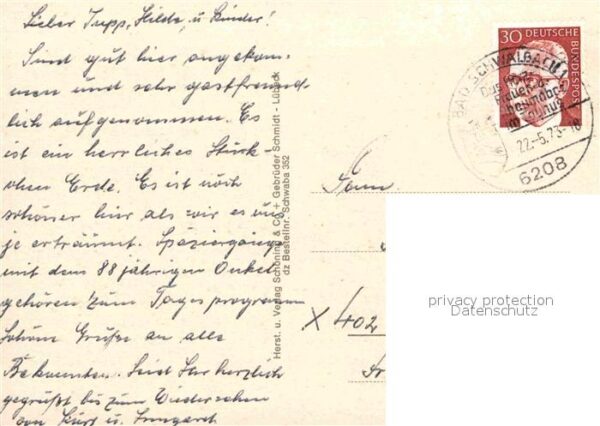 Lieber Jupp, Hilde, u. Kinder!
Sind gut hier angekom-
men und sehr gastfreund-
lich aufgenommen. Es
ist ein herrliches Stück-
chen Erde. Es ist noch
schöner hier als wir es uns
je erträumt. Spaziergänge
mit dem 88 jährigen Onkel
gehören zum Tagesprogramm
Schöne Grüße an alle
Bekannten. Seid herzlich
gegrüßt bis zum Wiedersehen
von Kurt u. Irmgard
Herst. u. Verlag Schöning & Co + Gebrüder Schmidt - Lübeck
dz Bestellnr. Schwaba 352
30 DEUTSCHE BUNDESPOST
BAD SCHWALBACH 1
22.-5.73-18
6208
Fam.
X 402
privacy protection
Datenschutz